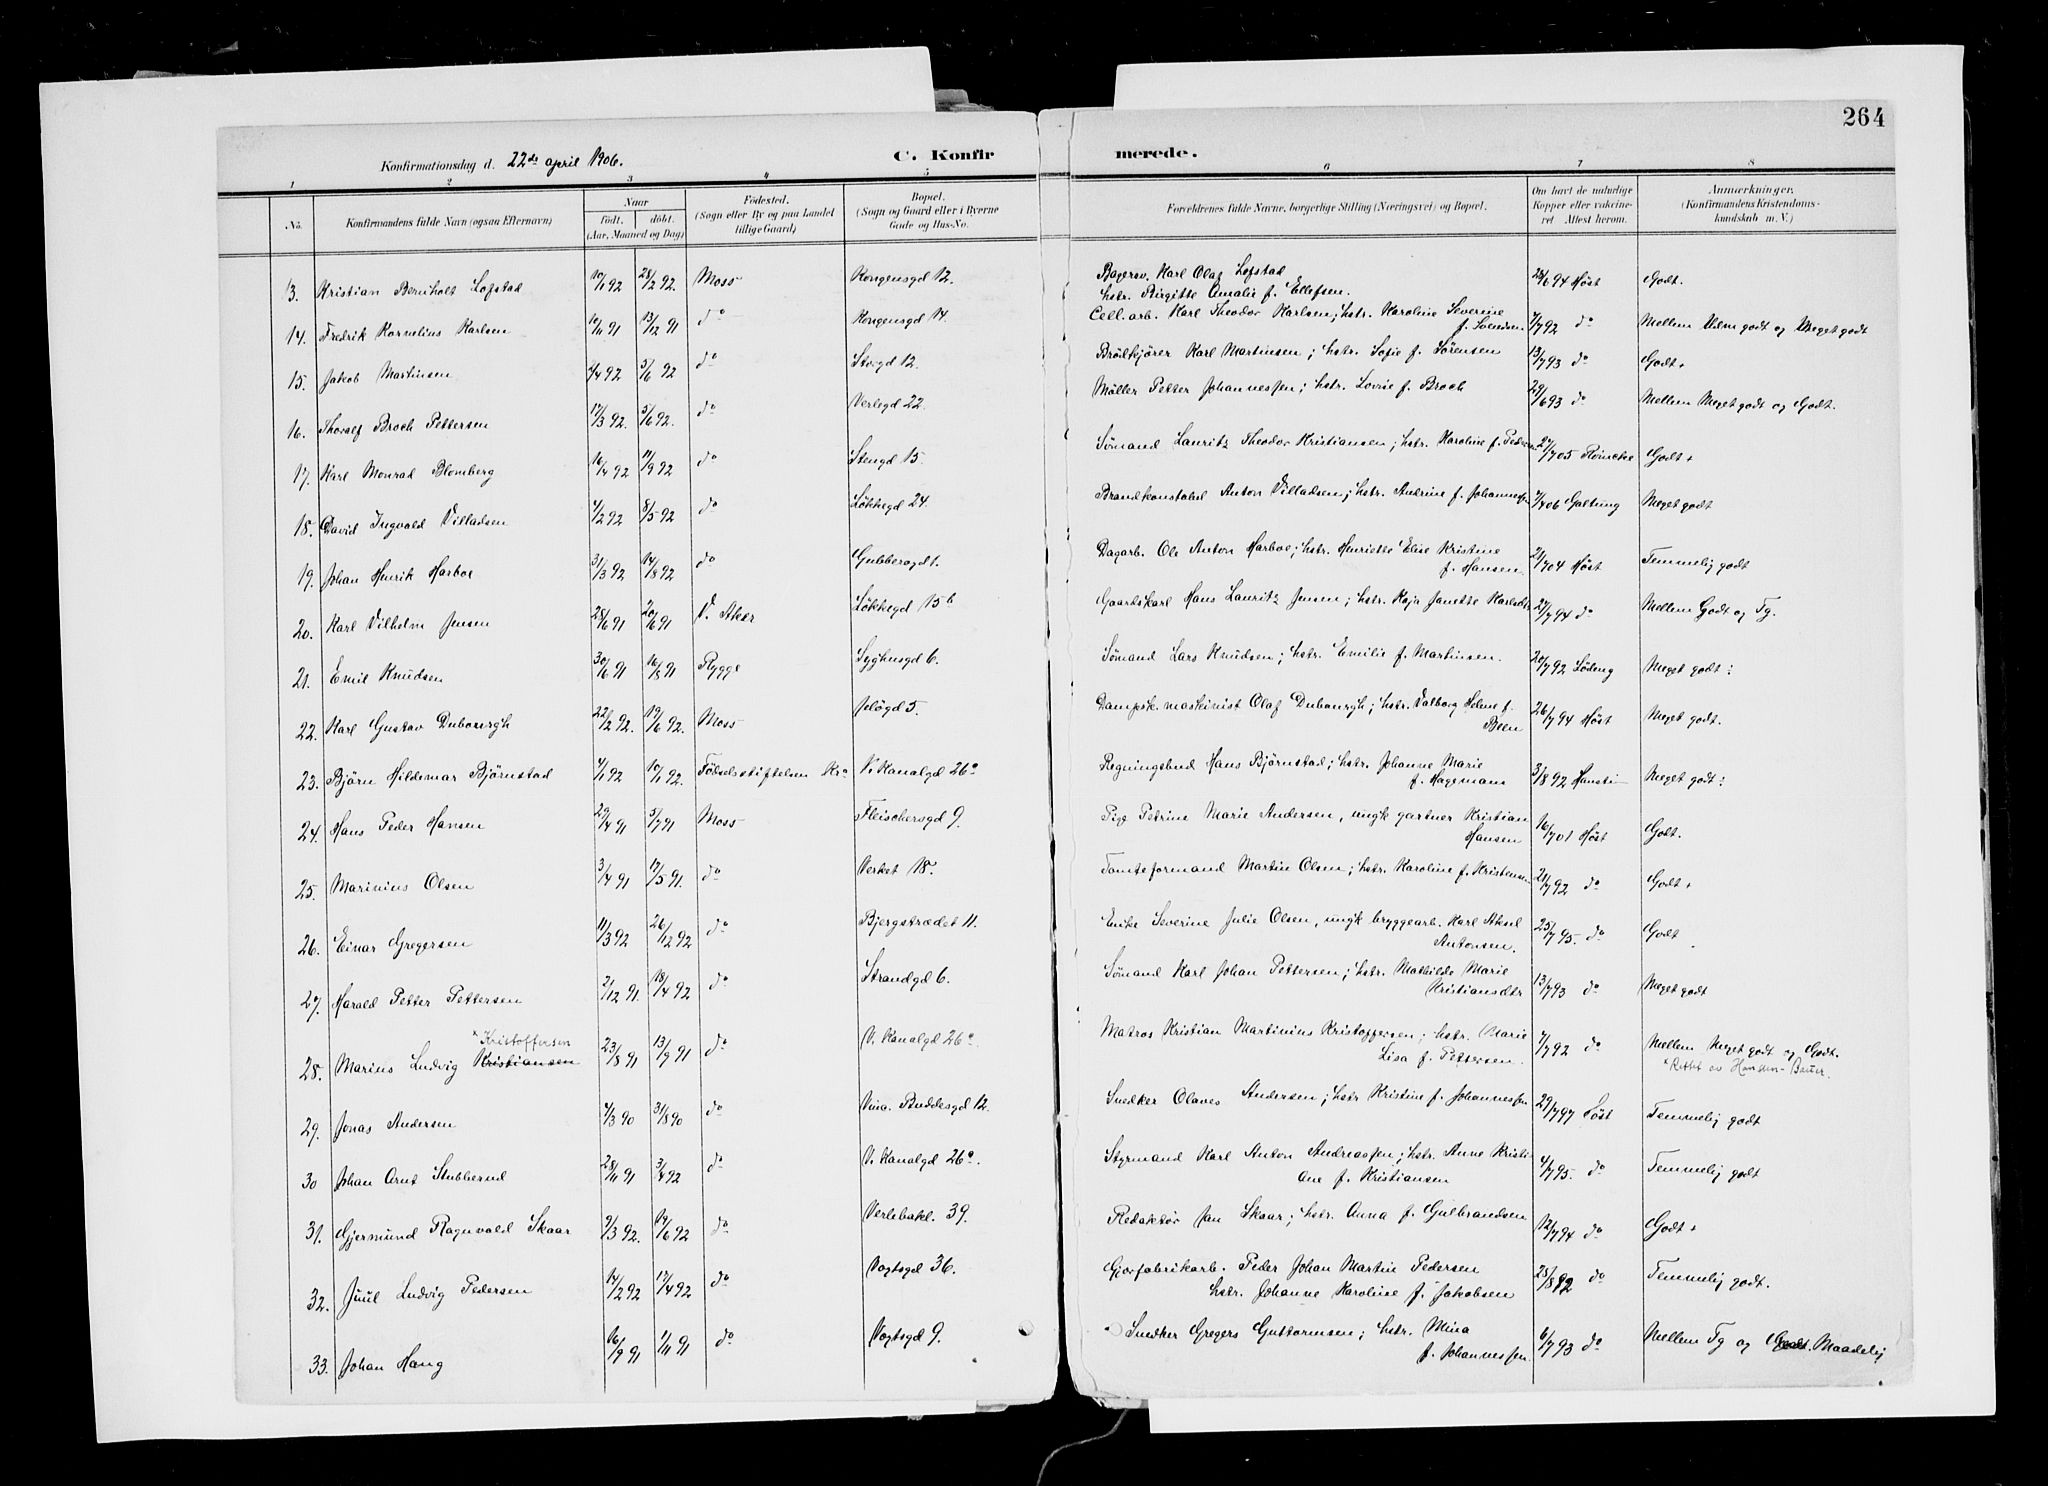 264
Konfirmationsdag d. 22de april 1906.
C. Konfirmerede.
1 2 3 4 5 6 7 8
No. Konfirmandens fulde Navn (ogsaa Efternavn) Naar født. døbt. (Aar, Maaned og Dag) Fødested. (Sogn eller By og paa Landet tillige Gaard) Bopæl. (Sogn og Gaard eller i Byerne Gade og Hus-No. Forældrenes fulde Navne, borgerlige Stilling (Næringsvei) og Bopæl. Om havt de naturlige Kopper eller vaccineret Attest herom. Anmærkninger. (Konfirmandens Kristendomskundskab m. V.)
13. Kristian Bernholt Lofstad 10/1 92 28/2 92. Moss Kongensgd 12. Bagersv. Karl Olaf Lofstad hstr. Birgitte Amalie f. Ellefsen. 28/6 94 Høst Godt.
14. Fredrik Kornelius Karlsen 10/11 91 13/12 91 do Kongensgd 14. Cell. arb. Karl Theodor Karlsen; hstr. Karoline Severine f. Svendsen 7/7 92 do Mellem Udm godt og Meget godt
15. Jakob Martinsen 4/4 92 5/6 92 do Storgd 12. Brødkjører Karl Martinsen; hstr. Sofie f. Sørensen 13/7 93 do Godt+
16. Thoralf Broch Pettersen 17/3 92. 5/6 92. do Verlegd 22. Møller Petter Johannessen; hstr. Lovise f. Broch 29/6 93 do Mellem Meget godt og Godt.
17. Karl Monrad Blomberg 16/4 92 11/9 92 do Stengd 15. Sømand Lauritz Theodor Kristiansen; hstr. Karoline f. Pedersen 27/7 05 Godt+
18. David Ingvald Villadsen 4/2 92 8/5 92 do Løkkegd 24. Brandkonstabel Anton Villadsen; hstr. Andrine f. Johannessen 7/4 06 Galtung Meget godt
19. Johan Henrik Harboe 31/3 92 14/8 92 do Gubberogd 1. Dagarb. Ole Anton Harboe; hstr. Henriette Elise Kristine f. Hansen. 21/7 04 Høst Temmelig godt
20. Karl Vilhelm Jensen 28/6 91 20/6 91 V. Aker Løkkegd 15b Gaardskarl Hans Lauritz Jensen; hstr. Kaja Janette Karlsdtr 27/7 94 do Mellem Godt og Tg.
21. Emil Knudsen 30/6 91 16/8 91 Rygge Syghusgd 6. Sømand Lars Knudsen; hstr. Emilie f. Martinsen. 20/7 92 Løding Meget godt ÷
22. Karl Gustav Dubourgh 22/2 92. 19/6 92. Moss Jeløgd 5. Dampsk. maskinist Olaf Dubourgh; hstr. Valborg Helene f. Been 26/7 94 Høst Meget godt.
23. Bjørn Hildemar Bjørnstad 4/1 92 10/1 92. Fødselsstiftelsen Kra V. Kanalgd 26a Regningsbud Hans Bjørnstad; hstr. Johanne Marie f. Hagemann 3/8 92 Meget godt ÷
24. Hans Peder Hansen 29/4 91 5/7 91 Moss Fleischersgd 9. Pige Petrine Marie Andersen, ungk gartner Kristian Hansen 16/7 01 Høst Godt.
25. Marinius Olsen 3/4 91 17/5 91. do Verket 18. Tomteformand Martin Olsen; hstr. Karoline f. Kristensen 21/7 92 do Godt+
26. Einar Gregersen 11/3 92 26/12 92 do Bjergstrædet 11. Enke Severine Julie Olsen, ungk bryggearb. Karl Aksel Antonsen. 25/7 95. do Godt
27. Harald Petter Pettersen 2/12 91. 18/4 92 do Strandgd 6. Sømand Karl Johan Pettersen; hstr. Mathilde Marie Kristiansdtr 13/7 93 do Meget godt
28. Marius Ludvig Kristiansen × Kristoffersen 23/8 91 13/9 91 do V. Kanalgd 26a. Matros Kristian Martinius Kristoffersen; hstr. Marie Lisa f. Pettersen. 7/7 92 do Mellem Meget godt og Godt. × Rettet av Hansen-Bauer.
29. Jonas Andersen 4/3 90 31/8 90 do Vinc. Buddesgd 12. Snedker Olaves Andersen; hstr Kristine f. Johannessen 29/7 97 Høst Temmelig godt
30 Johan Arnt Stubberud 28/11 91 3/4 92 do V. Kanalgd 26a. Styrmand Karl Anton Andreassen; hstr. Anne Kristiane f. Kristiansen 4/7 95. do Temmelig godt
31. Gjermund Ragnvald Skaar 9/3 92. 19/6 92 do Verlebakl. 39. Redaktør Jan Skaar; hstr. Anna f. Gulbrandsen 12/7 94 do Godt+
32. Juul Ludvig Pedersen 14/2 92 17/4 92 do Vogtsgd 36. Gjørfabrikarb. Peder Johan Martin Pedersen hstr. Johanne Karoline f. Jakobsen 25/8 92 do Temmelig godt.
33. Johan Haug 16/9 91 1/11 91 do Vogtsgd 9. Snedker Gregers Guttormsen; hstr. Mina f. Johannessen. 6/7 93 do Mellem Tg og Godt. Maadelig